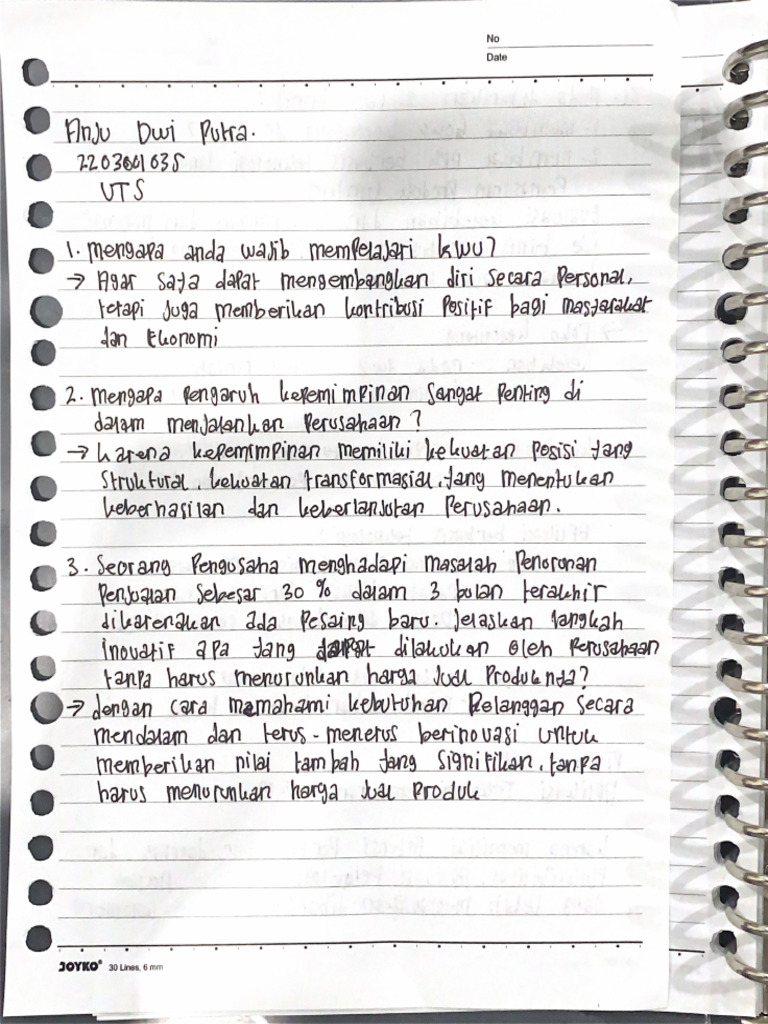 No
Date
Anju Dwi Putra.
2203801035
UTS
1. mengapa anda wajib mempelajari kwu?
→ Agar saya dapat mengembangkan diri secara Personal,
tetapi juga memberikan kontribusi Positif bagi masyarakat
dan Ekonomi
2. mengapa Pengaruh kepemimpinan sangat Penting di
dalam menjalankan Perusahaan?
→ karena kepemimpinan memiliki kekuatan Posisi yang
struktural, kekuatan transformasial, yang menentukan
keberhasilan dan keberlanjutan Perusahaan.
3. Seorang Pengusaha menghadapi masalah Penoronan
Penjualan sebesar 30 % dalam 3 bulan terakhir
dikarenakan ada Pesaing baru. Jelaskan langkah
inovatif apa yang dapat dilakukan oleh Perusahaan
tanpa harus menurunkan harga Jual Produknya?
→ dengan cara memahami kebutuhan Pelanggan secara
mendalam dan terus-menerus berinovasi untuk
memberikan nilai tambah yang signifikan, tanpa
harus menurunkan harga Jual Produk
JOYKO® 30 Lines, 6 mm